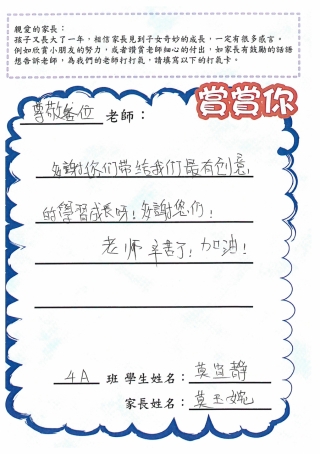 親愛的家長：
孩子又長大了一年，相信家長見到子女奇妙的成長，一定有很多感言。
例如欣賞小朋友的努力，或者讚賞老師細心的付出，如家長有鼓勵的話語
想告訴老師，為我們的老師打打氣，請填寫以下的打氣卡。
賞賞你
尊敬各位 老師：
多謝您们帶给我们最有创意，
的學習成長呀！多謝您们！
老师辛苦了！加油！
4A 班 學生姓名：莫宣靜
家長姓名：莫玉婉